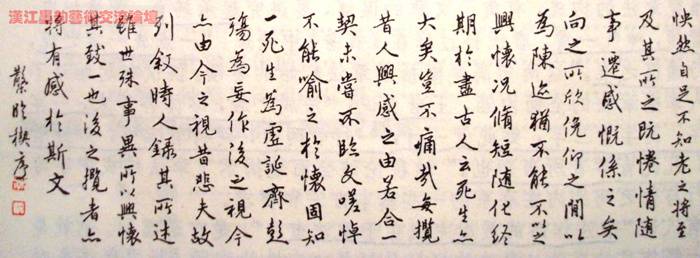 漢江墨韵藝術交流論壇
怏然自足不知老之将至
及其所之既惓情随
事遷感慨係之矣
向之所欣俛仰之間以
為陳迹猶不能不以之
興懷况脩短随化終
期於盡古人云死生亦
大矣豈不痛哉每攬
昔人興感之由若合一
契未嘗不臨文嗟悼
不能喻之於懷固知
一死生為虛誕齊彭
殤為妄作後之視今
亦由今之視昔悲夫故
列叙時人錄其所述
雖世殊事異所以興懷
其致一也後之攬者亦
将有感於斯文
臨禊序